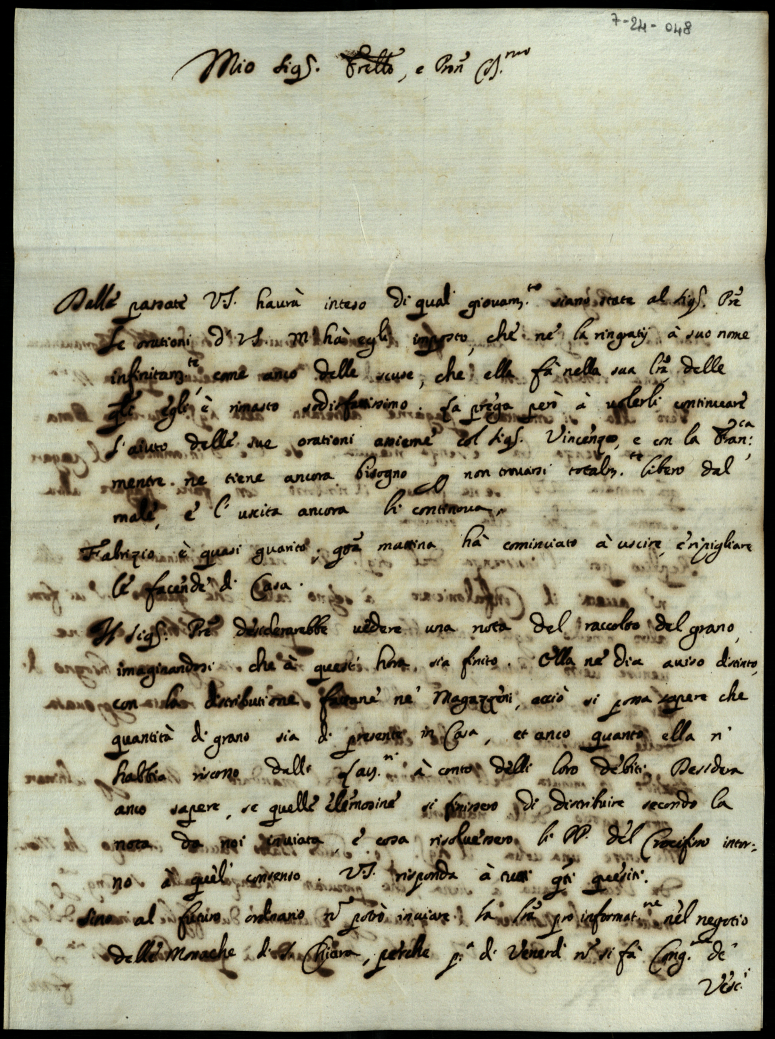 7-24-048
Mio Sig.r Frello, e Pron Col.mo
Dalle passate VS. haverà inteso di qual giovam.to siano state al Sig.r Pre
le orationi di VS. M'hà egli imposto, che ne la ringratij à suo nome
infinitam.te come anco delle scuse, che ella fà nella sua lra delle
qli egli è rimasto sodisfatissimo. La prega però à volerli continuare
l'aiuto delle sue orationi assieme col Sig.r Vincenzo, e con la Fran:ca
mentre ne tiene ancora bisogno non trovarsi totalm.te libero dal
male, e l'uscita ancora li continova.
Fabrizio è quasi guarito, qsta mattina hà cominciato à uscire, e ripigliare
le facende di Casa.
Il Sig.r Pre desiderarebbe vedere una nota del raccolto del grano,
imaginandosi che à quest' hora sia finito. Ella ne dia aviso distinto,
con la distributione fattane ne' Magazzeni, acciò si possa sapere che
quantità di grano sia di presente in Casa, et anco quanto ella n'
habbia riscosso dalli à conto delli loro debiti. Desidera
anco sapere, se quelle elemosine si finissero di distribuire secondo la
nota da noi inviata, e cosa risolvessero li PP. del Crocifisso intor-
no à quel consenso. VS. risponda à tutti qsti quesiti.
Sino al futuro ordinario nō potrò inviare la lra pro informat.ne nel negotio
delle Monache di S. Chiara, perche p.a di Venerdi nō si fà Cong.ne de'
Vesc.i